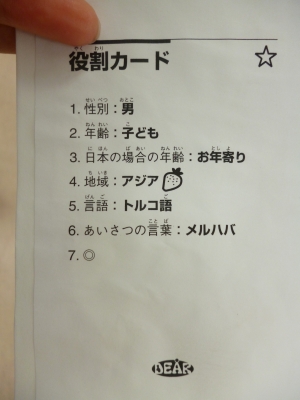 役割カード ☆
1. 性別：男
2. 年齢：子ども
3. 日本の場合の年齢：お年寄り
4. 地域：アジア
5. 言語：トルコ語
6. あいさつの言葉：メルハバ
7. ◎
DEAR